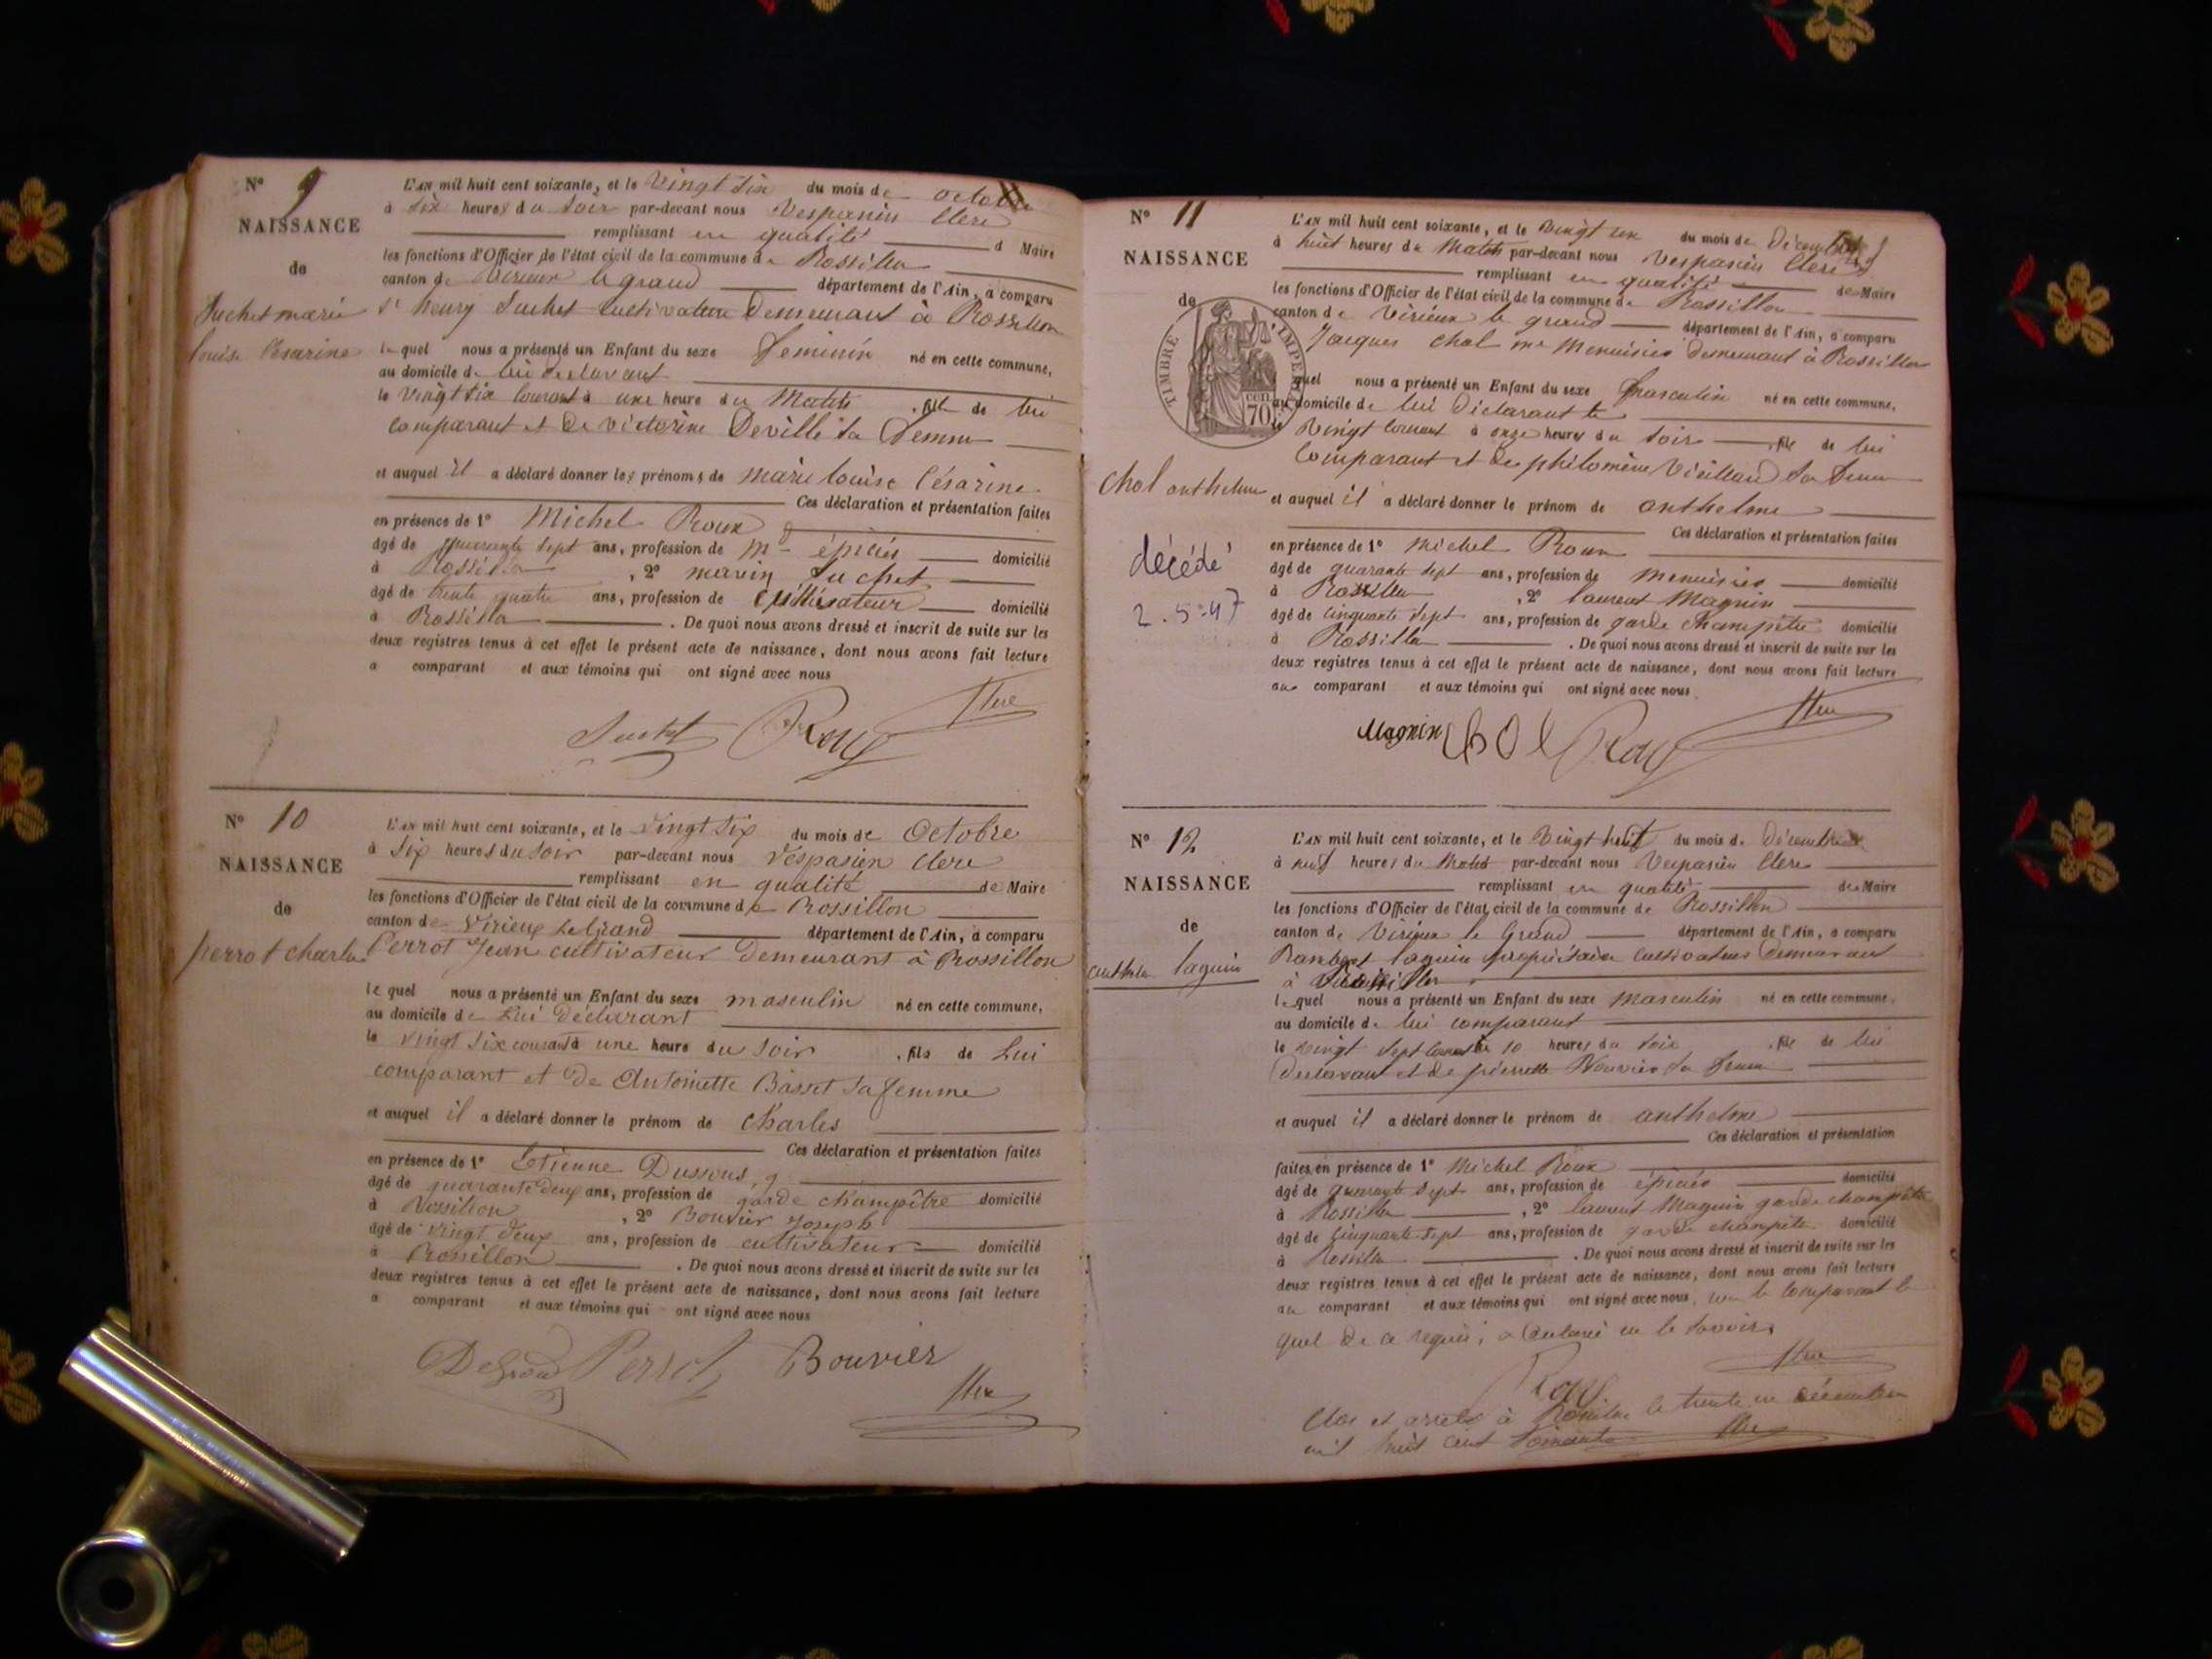 N° 9
NAISSANCE
de
Suchet marie
louise Césarine
L'AN mil huit cent soixante, et le Vingt Six du mois de octobre
à Six heures du Soir par-devant nous Vespasien Clerc
remplissant en qualité d Maire
les fonctions d'Officier de l'état civil de la commune de Rossillon
canton de Virieux le grand département de l'Ain, a comparu
Sr henry Suchet Cultivateur Demeurant à Rossillon
le quel nous a présenté un Enfant du sexe Feminin né en cette commune,
au domicile de lui déclarant
le Vingt Six Courant à une heure du Matin , fille de lui
comparant et de victorine Deville Sa Femme
et auquel il a déclaré donner les prénoms de marie louise Césarine
Ces déclaration et présentation faites
en présence de 1° Michel Roux
âgé de quarante Sept ans, profession de Md épicier domicilié
à Rossillon , 2° marin Suchet
âgé de trente quatre ans, profession de Cultivateur domicilié
à Rossillon . De quoi nous avons dressé et inscrit de suite sur les
deux registres tenus à cet effet le présent acte de naissance, dont nous avons fait lecture
a comparant et aux témoins qui ont signé avec nous
Suchet Roux Clerc
N° 10
NAISSANCE
de
perrot charles
L'AN mil huit cent soixante, et le Vingt Six du mois de Octobre
à Six heures du Soir par-devant nous Vespasien Clerc
remplissant en qualité de Maire
les fonctions d'Officier de l'état civil de la commune de Rossillon
canton de Virieux le Grand département de l'Ain, a comparu
Perrot Jean cultivateur Demeurant à Rossillon
le quel nous a présenté un Enfant du sexe masculin né en cette commune,
au domicile de Lui Déclarant
le Vingt Six courant à une heure du Soir , fils de Lui
comparant et de Antoinette Basset Sa femme
et auquel il a déclaré donner le prénom de Charles
Ces déclaration et présentation faites
en présence de 1° Etienne
âgé de quarante deux ans, profession de garde champêtre domicilié
à Rossillon , 2° Bouvier Joseph
âgé de Vingt Deux ans, profession de cultivateur domicilié
à Rossillon . De quoi nous avons dressé et inscrit de suite sur les
deux registres tenus à cet effet le présent acte de naissance, dont nous avons fait lecture
a comparant et aux témoins qui ont signé avec nous
Perrot Bouvier
Clerc
N° 11
NAISSANCE
de
TIMBRE IMPERIAL
70 cen
Chol anthelme
décédé
2.5.47
L'AN mil huit cent soixante, et le Vingt un du mois de Décembre
à huit heures du Matin par-devant nous Vespasien Clerc
remplissant en qualité de Maire
les fonctions d'Officier de l'état civil de la commune de Rossillon
canton de Virieux le grand département de l'Ain, a comparu
Jacques Chol me Menuisier demeurant à Rossillon
quel nous a présenté un Enfant du sexe Masculin né en cette commune,
au domicile de lui Déclarant le
Vingt Courant à onze heures du Soir , fils de lui
Comparant et de philomène Vieillard Sa femme
et auquel il a déclaré donner le prénom de anthelme
Ces déclaration et présentation faites
en présence de 1° Michel Roux
âgé de quarante Sept ans, profession de Menuisier domicilié
à Rossillon , 2° laurent Magnin
âgé de Cinquante Sept ans, profession de garde Champêtre domicilié
à Rossillon . De quoi nous avons dressé et inscrit de suite sur les
deux registres tenus à cet effet le présent acte de naissance, dont nous avons fait lecture
au comparant et aux témoins qui ont signé avec nous
Magnin Chol Roux Clerc
N° 12
NAISSANCE
de
anthelme laguin
L'AN mil huit cent soixante, et le Vingt huit du mois de Décembre
à neuf heures du Matin par-devant nous Vespasien Clerc
remplissant en qualité de Maire
les fonctions d'Officier de l'état civil de la commune de Rossillon
canton de Virieux le Grand département de l'Ain, a comparu
Rambert laguin propriétaire Cultivateur Demeurant
à Rossillon
le quel nous a présenté un Enfant du sexe Masculin né en cette commune,
au domicile de lui comparant
le Vingt Sept Courant à 10 heures du Soir , fils de lui
Déclarant et de pierrette Sa femme
et auquel il a déclaré donner le prénom de anthelme
Ces déclaration et présentation
faites en présence de 1° Michel Roux
âgé de quarante Sept ans, profession de épicier domicilié
à Rossillon , 2° laurent Magnin garde champêtre
âgé de Cinquante Sept ans, profession de garde champêtre domicilié
à Rossillon . De quoi nous avons dressé et inscrit de suite sur les
deux registres tenus à cet effet le présent acte de naissance, dont nous avons fait lecture
au comparant et aux témoins qui ont signé avec nous, non le Comparant le
quel de ce requis, a Déclaré ne le Savoir
Clerc
Roux
Clos et arrêté à Rossillon le trente un décembre
mil huit cent Soixante Clerc